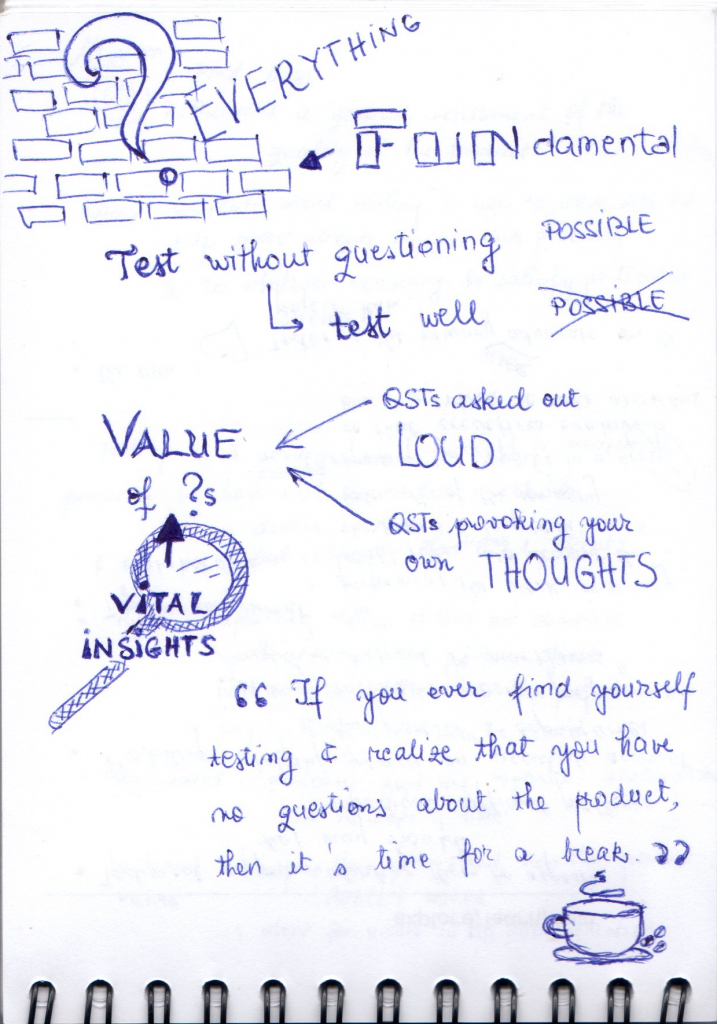 ? EVERYTHING
FUNdamental
Test without questioning POSSIBLE
test well POSSIBLE
VALUE
of ?s
QSTs asked out
LOUD
QSTs provoking your
own THOUGHTS
VITAL
INSIGHTS
“ If you ever find yourself
testing & realize that you have
no questions about the product,
then it's time for a break ”